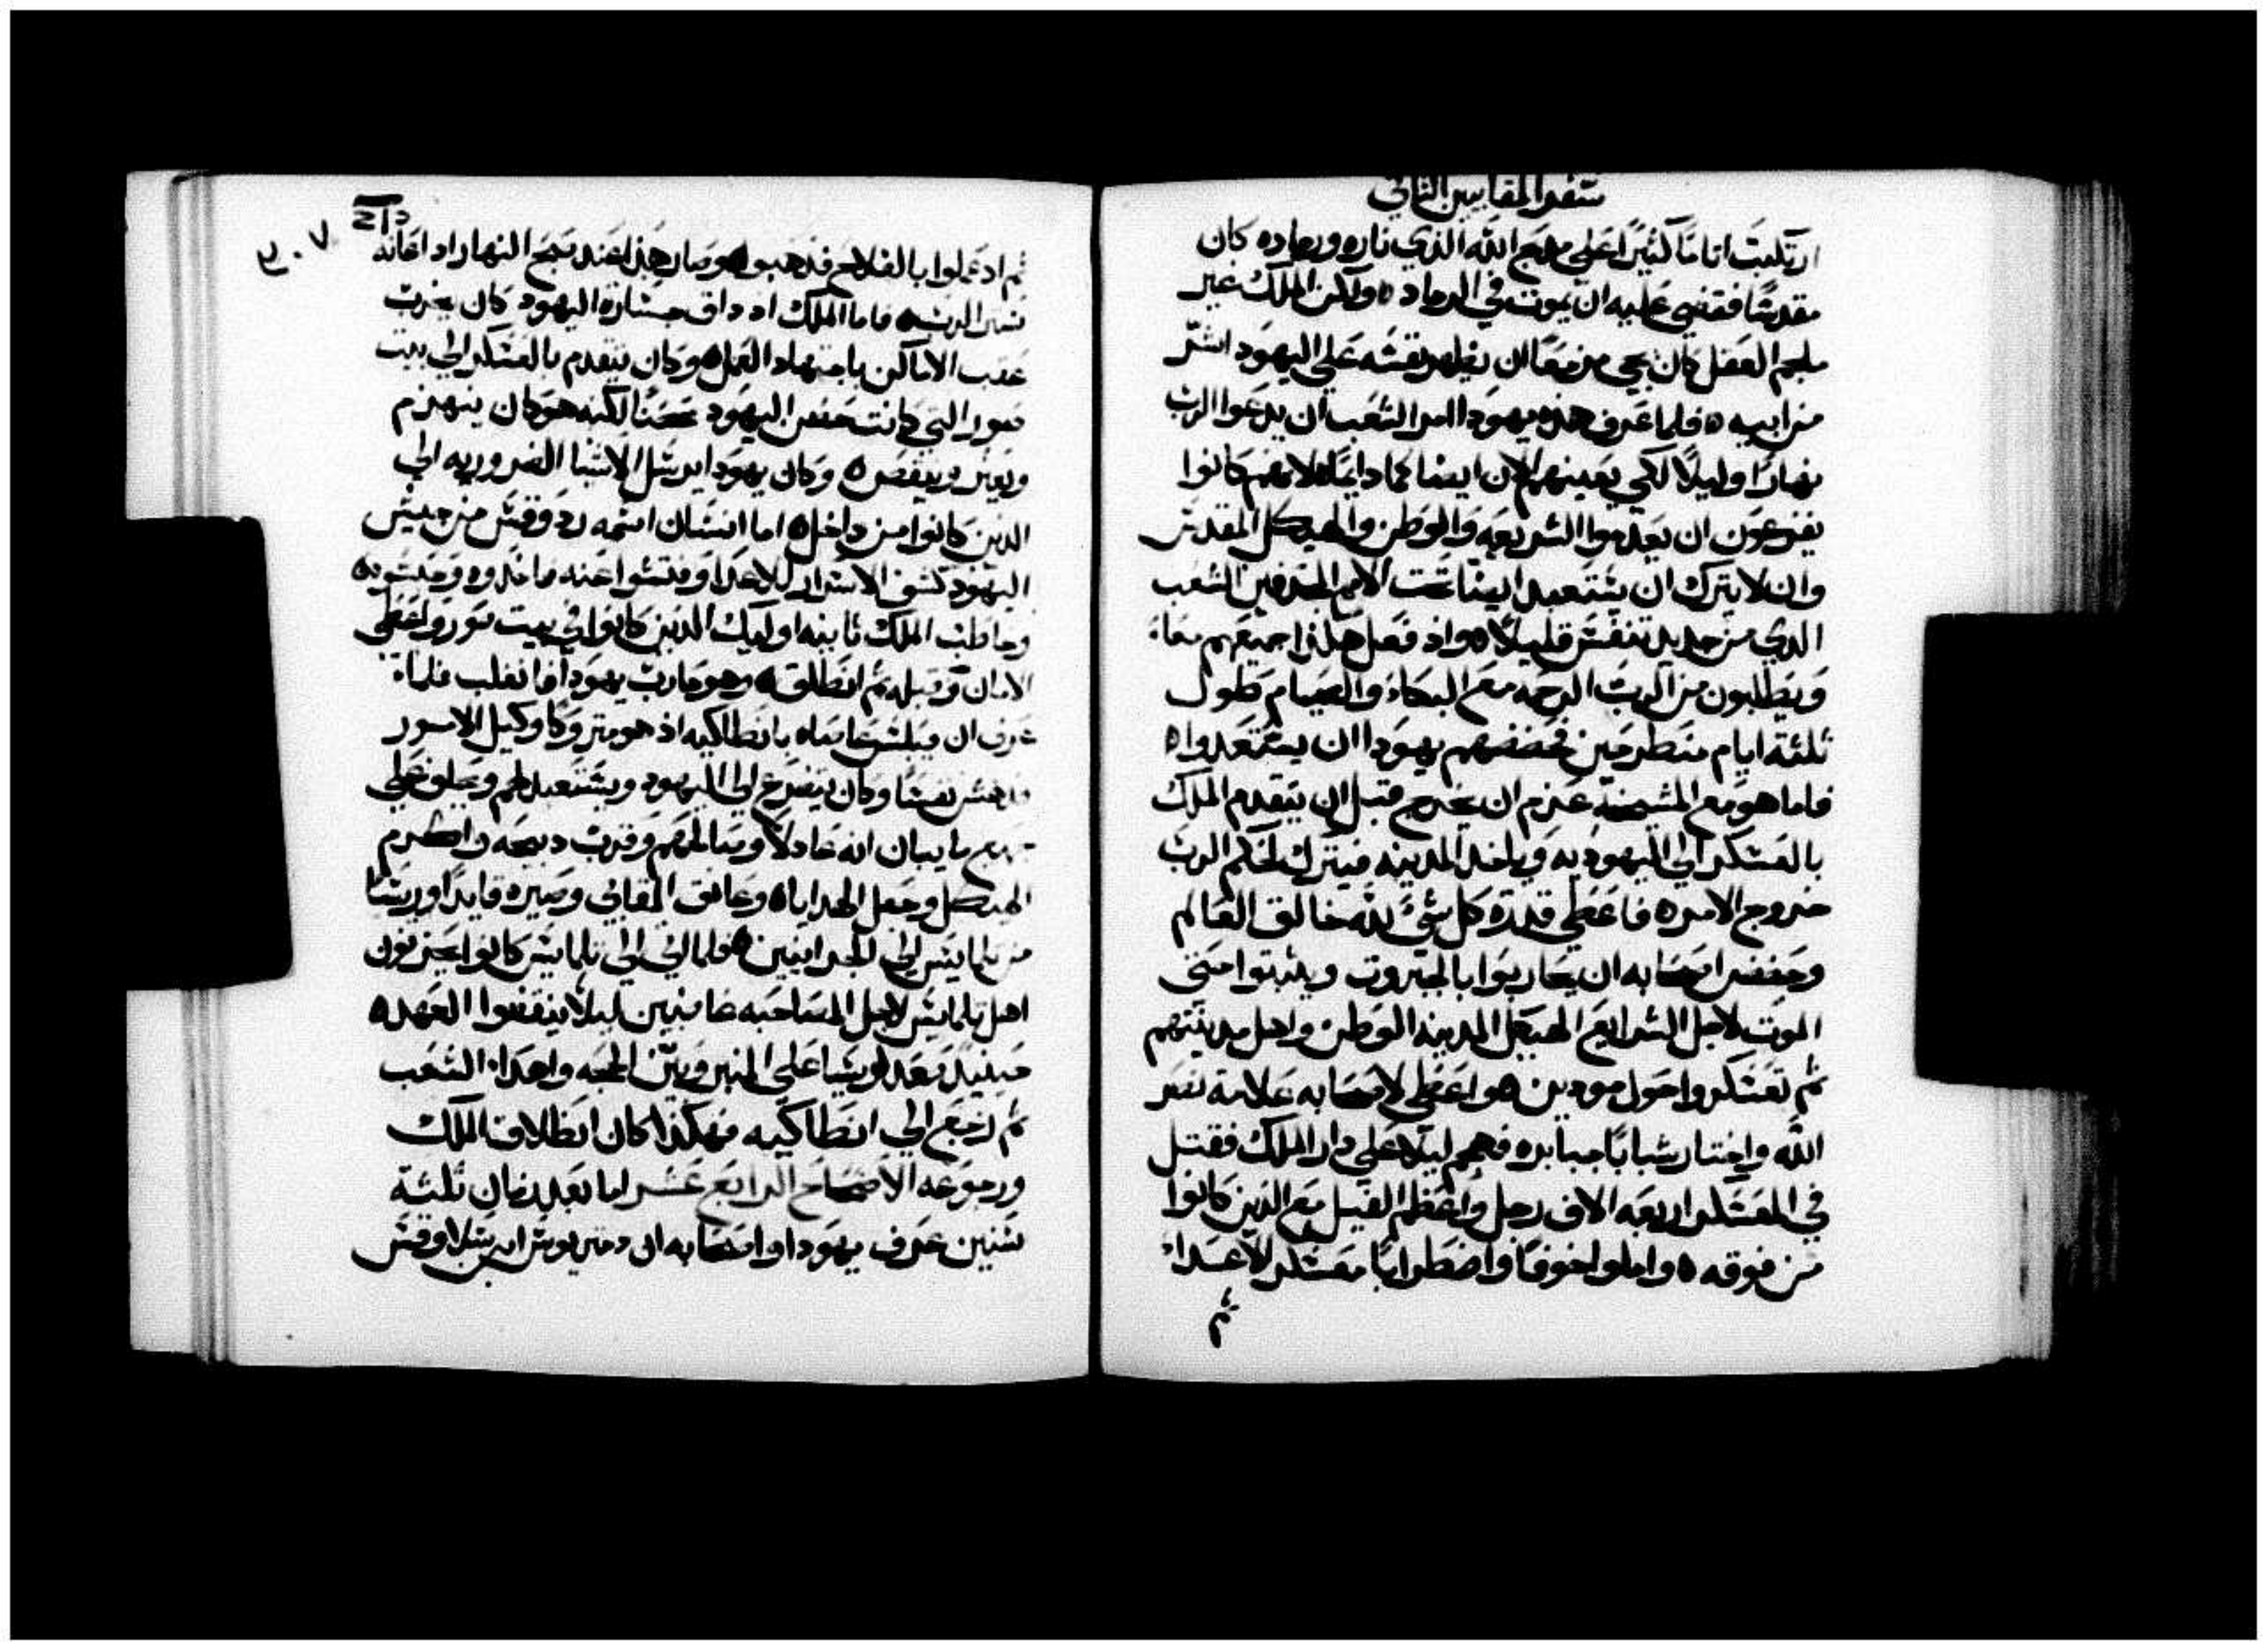 سفر المقابيين الثاني
ارتكبت اثامًا كثيرًا على مذبح الله الذي ناره ورماده كان
مقدسًا فقضي عليه ان يموت في الرماد ٥ ولكن الملك غير
ملجم العقل كان يجي مزمعًا ان يظهر نفسه علي اليهود اشر
من ابيه ٥ فلما عرف هذه يهودا امر الشعب ان يدعوا الرب
نهارًا وليلاً لكي يعينهم الان ايضا كما دايمًا لانهم كانوا
يفزعون ان يعدموا الشريعه والوطن والهيكل المقدس
وان لا يترك ان يستعبد ايضا تحت الامم المجدفين الشعب
الذي من جديد تنفس قليلاً ٥ واذ فعل هكذا جميعهم معاً
ويطلبون من الرب الرحمه مع البكاء والصيام طول
ثلثة ايام منطرحين فحضضهم يهودا ان يستعدوا ٥
فاما هو مع المشيخة عزم ان يخرج قبل ان يتقدم الملك
بالعسكر الي اليهوديه وياخذ المدينه فيترك لحكم الرب
خروج الامر ٥ فاعطي قدرة كل شيء لله خالق العالم
وحضض اصحابه ان يحاربوا بالجبروت ويثبتوا حتي
الموت لاجل الشرايع الهيكل المدينه الوطن واهل مدينتهم
ثم تعسكروا حول مودين ٥ واعطي لاصحابه علامة نصر
الله واختار شبابًا جبابره فهجم ليلاً علي دار الملك فقتل
في المعسكر اربعه الاف رجل واعظم الفيل مع الذين كانوا
من فوقه ٥ واملوا خوفًا واضطرابًا معسكر الاعداء
ثم
٣٠٧
ثم اذ عملوا بالفلاح فذهبوا ٥ وصار هذا عند صبح النهار اذ اعانه
نصر الرب ٥ فاما الملك اذ داق جسارة اليهود كان يجرب
عقب الاماكن باجتهاد العمل ٥ وكان يتقدم بالعسكر الي بيت
صور التي كانت حصن اليهود حصنًا لكنه هو كان ينهزم
ويعثر وينقص ٥ وكان يهودا يرسل الاشيا الضروريه الي
الذين كانوا من داخل ٥ اما انسان اسمه ردوقس من جيش
اليهود كشف الاسرار للاعدا وفتشوا عنه فاخذوه وحبسوه ٥
وخاطب الملك ثانيه اوليك الذين كانوا في بيت صور واعطي
الامان وقبله ثم انطلق ٥ وهو حارب يهودا فانغلب فلما
عرف ان فيلبس عاصاه بانطاكيه اذ هو متروكا وكيل الامور
وكان يتضرع الي اليهود ويستعبد لهم ويحلف علي
ما يبان انه عادلاً وصالحهم وقرب دبيحه واكرم
الهيكل وجعل الهدايا ٥ وعانق المقابي وصيره قايدًا وريسًا
من تلمايس الي الجرانيين ٥ فلما اتي الي تلمايس كانوا يحزنون
اهل تلمايس لاجل المصاحبه غاضبين ليلا ينقضوا العهد ٥
حينيد صعد لوسيا علي المنبر وبين الحجه واهدا الشعب
ثم رجع الي انطاكيه فهكذا كان انطلاق الملك
ورجوعه الاصحاح الرابع عشر اما بعد زمان ثلثة
سنين عرف يهودا واصحابه ان دمتريوس ابن سلاوقس